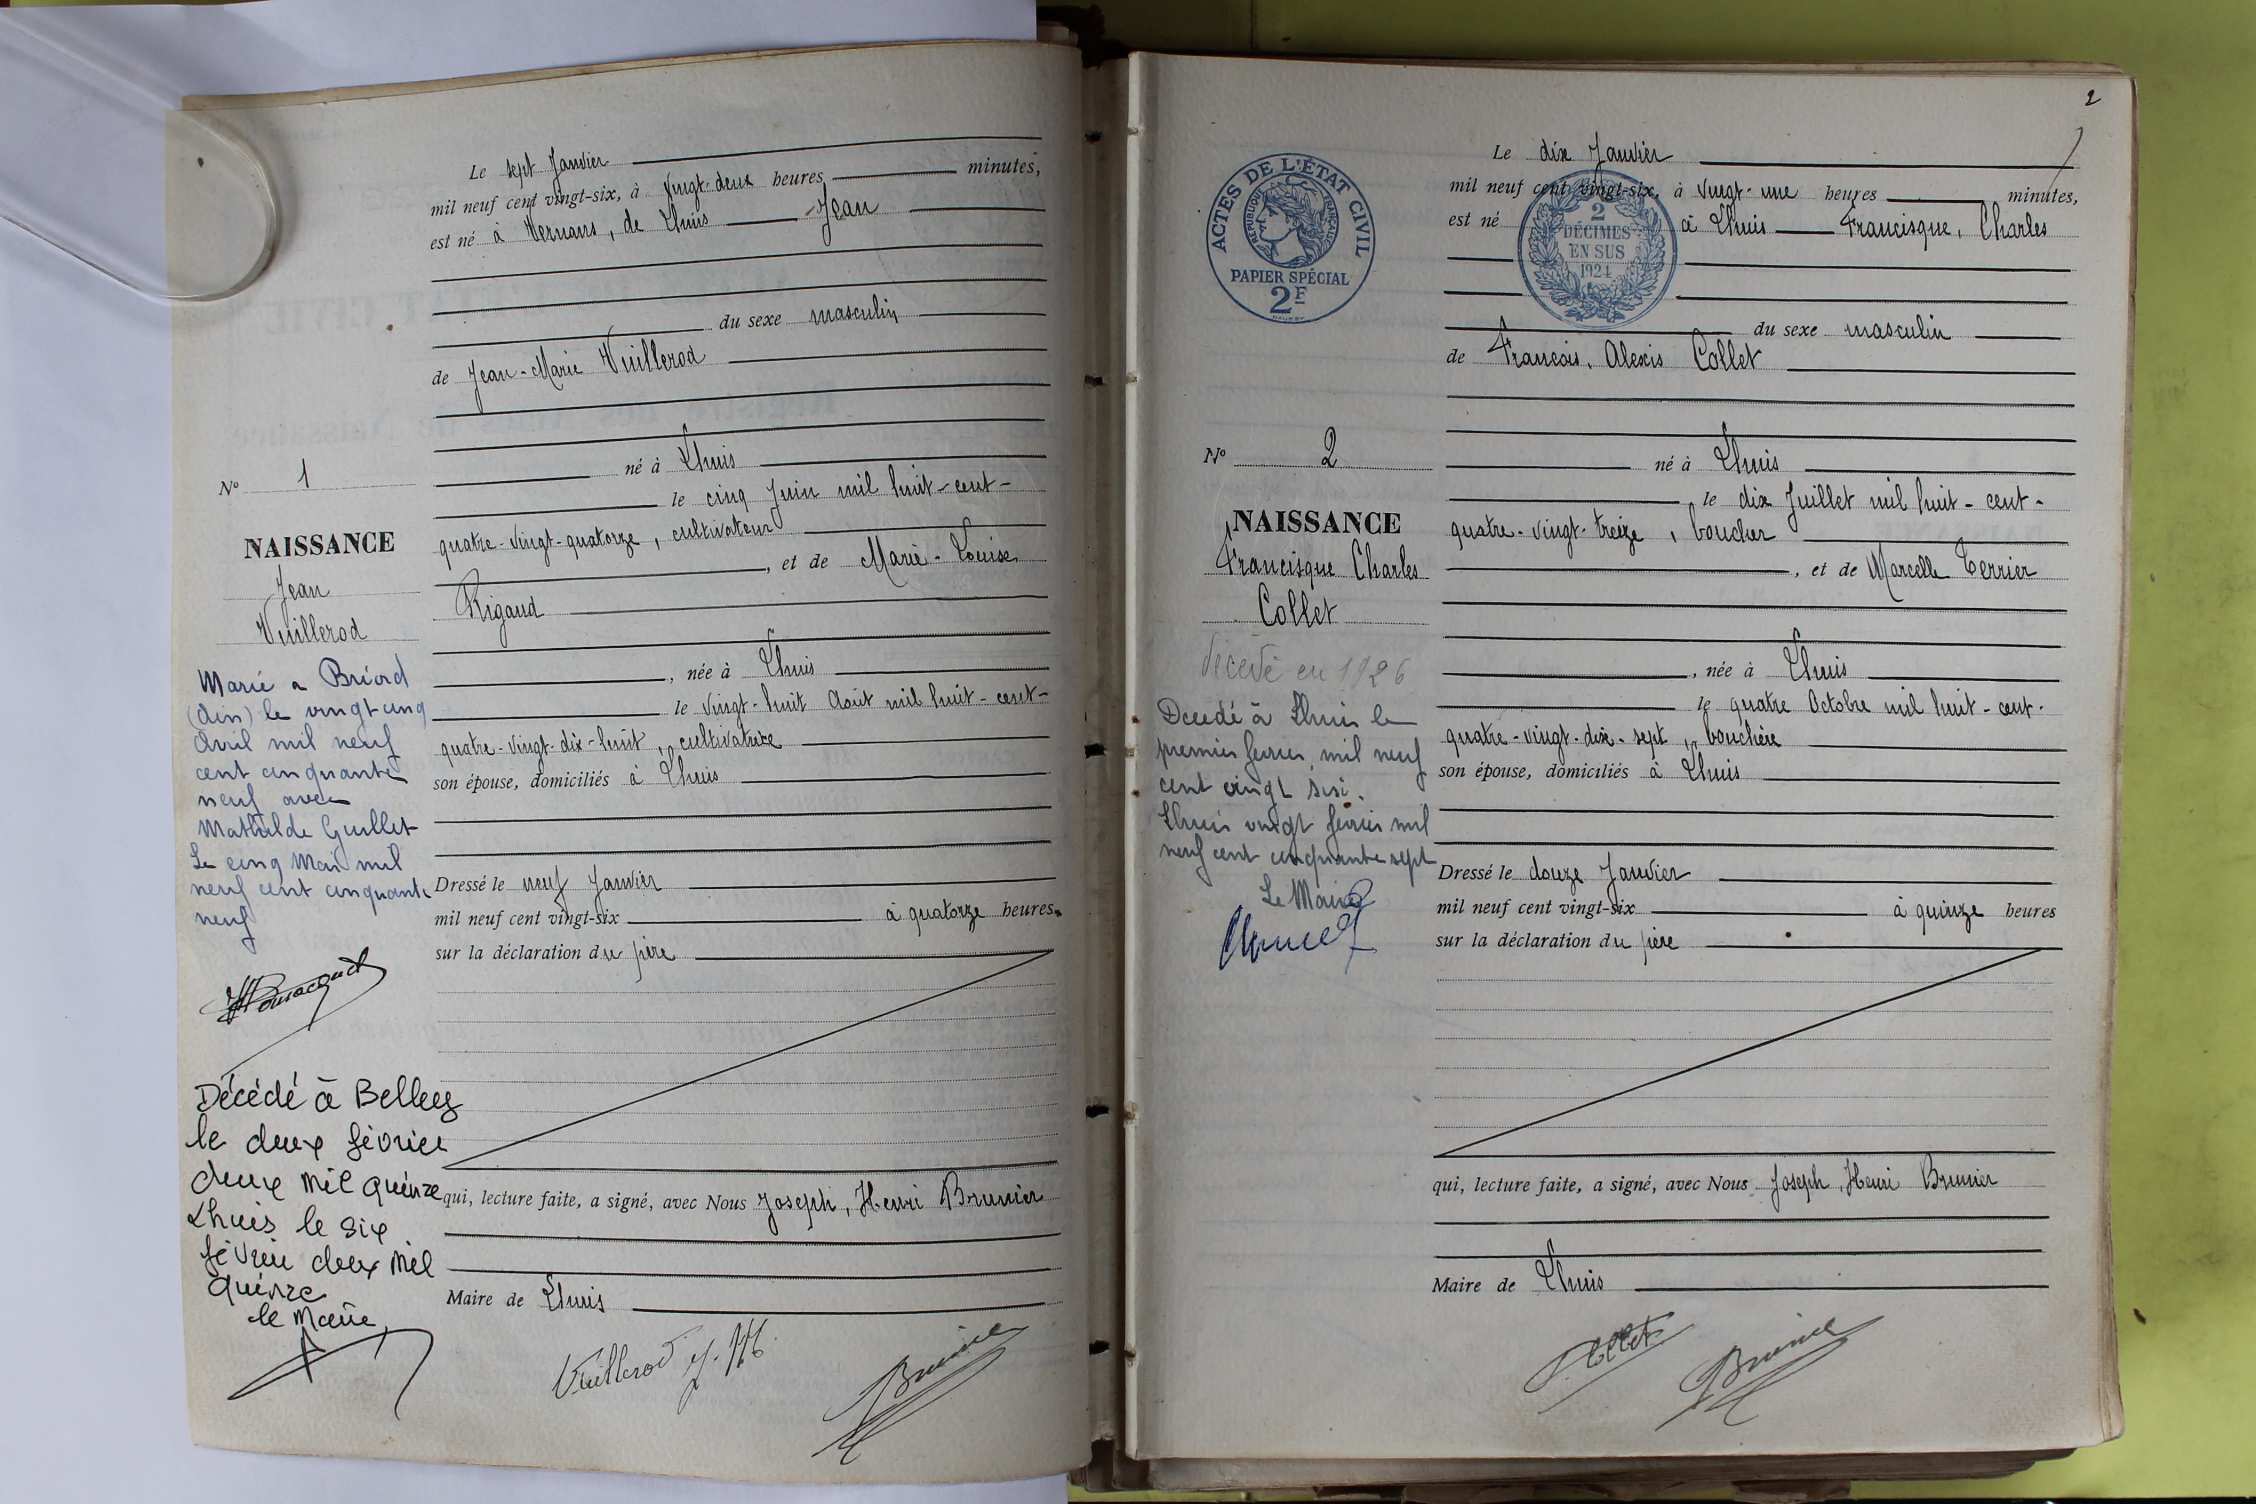 Le sept Janvier
mil neuf cent vingt-six, à vingt-deux heures minutes,
est né à Vernans, de Lhuis Jean
du sexe masculin
de Jean-Marie Vuillerod
né à Lhuis
le cinq Juin mil huit-cent-
quatre-vingt-quatorze, cultivateur
, et de Marie-Louise
Rigaud
, née à Lhuis
le vingt-huit Août mil huit-cent-
quatre-vingt-dix-huit, cultivatrice
son épouse, domiciliés à Lhuis
Dressé le neuf Janvier
mil neuf cent vingt-six à quatorze heures
sur la déclaration du père
qui, lecture faite, a signé, avec Nous Joseph, Henri Brunier
Maire de Lhuis
Vuillerod J. M.
Brunier
N° 1
NAISSANCE
Jean
Vuillerod
Marié a Briord
(Ain) le vingt cinq
Avril mil neuf
cent cinquante
neuf avec
Mathilde Guillet
Le cinq Mai mil
neuf cent cinquante
neuf
Décédé à Belley
le deux février
deux mil quinze
Lhuis le six
février deux mil
quinze
le Maire,
2
ACTES DE L'ÉTAT CIVIL
RÉPUBLIQUE FRANÇAISE
PAPIER SPÉCIAL
2F
2
DÉCIMES
EN SUS
1924
Le dix Janvier
mil neuf cent vingt-six, à vingt-une heures minutes,
est né à Lhuis Francisque, Charles
du sexe masculin
de François, Alexis Collet
né à Lhuis
, le dix Juillet mil huit-cent-
quatre-vingt-treize, boucher
, et de Marcelle Terrier
, née à Lhuis
le quatre Octobre mil huit-cent-
quatre-vingt-dix-sept, bouchère
son épouse, domiciliés à Lhuis
Dressé le douze Janvier
mil neuf cent vingt-six à quinze heures
sur la déclaration du père
qui, lecture faite, a signé, avec Nous Joseph, Henri Brunier
Maire de Lhuis
Collet
Brunier
N° 2
NAISSANCE
Francisque Charles
Collet
décédé en 1926
Décedé à Lhuis le
premier fevrier mil neuf
cent vingt six.
Lhuis vingt fevrier mil
neuf cent cinquante sept
Le Maire